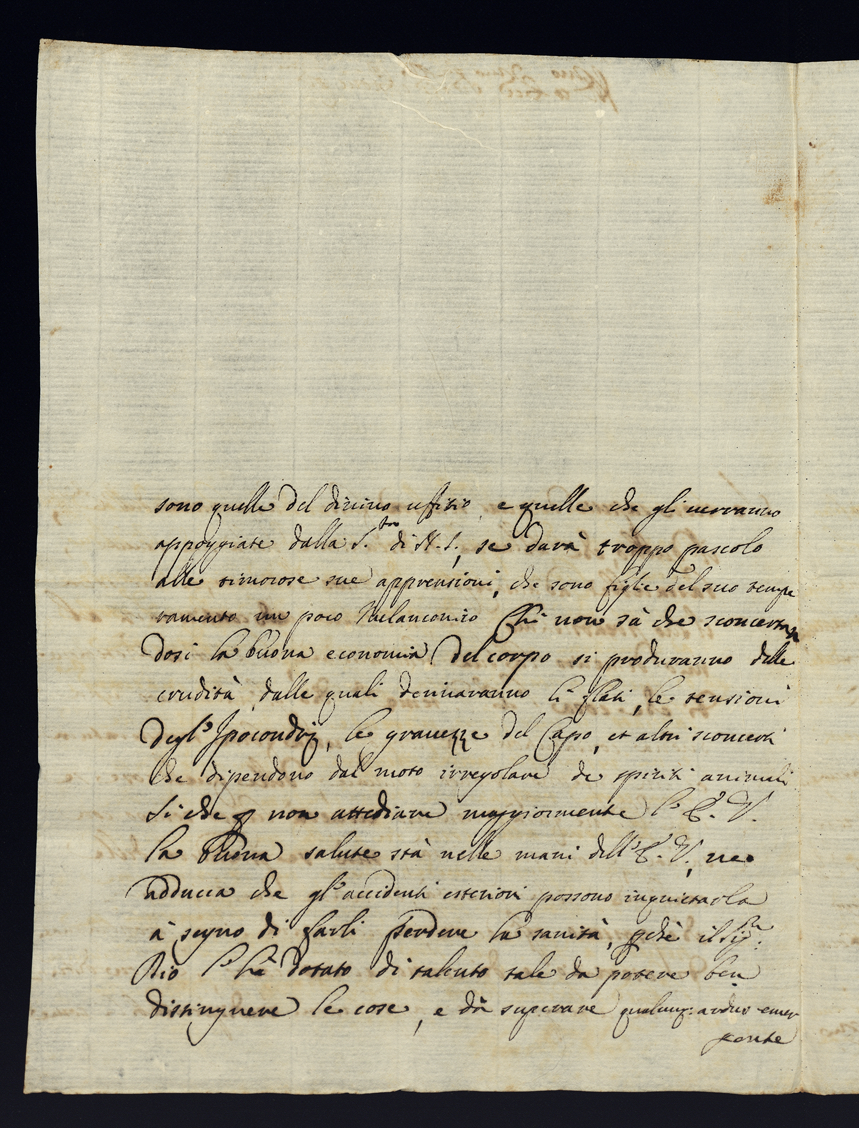 sono quelle del divino uffitio, e quelle che gli verranno
appoggiate dalla S.tta di N. S., se darà troppo pascolo
alle timorose sue apprensioni, che sono figlie del suo tempe
ramento un poco Malanconico Chi non sà che sconcertan
dosi la buona economia del corpo si produranno delle
crudità, dalle quali deriuaranno li flati, le tensioni
degl'Ipocondrij, le grauezze del Capo, et altri sconcerti
che dipendono dal moto irregolare de spiriti animali
Si che p non attediare maggiormente l'E. V.
la buona salute stà nelle mani dell'E. V., ne
adduca che gl'accidenti esteriori possono inquietarla
à segno di farli perdere la sanità, pche il Sig.r
Dio l'hà dotato di talento tale da potere ben
distinguere le cose, e dà superare qualunq: arduo emer
gente